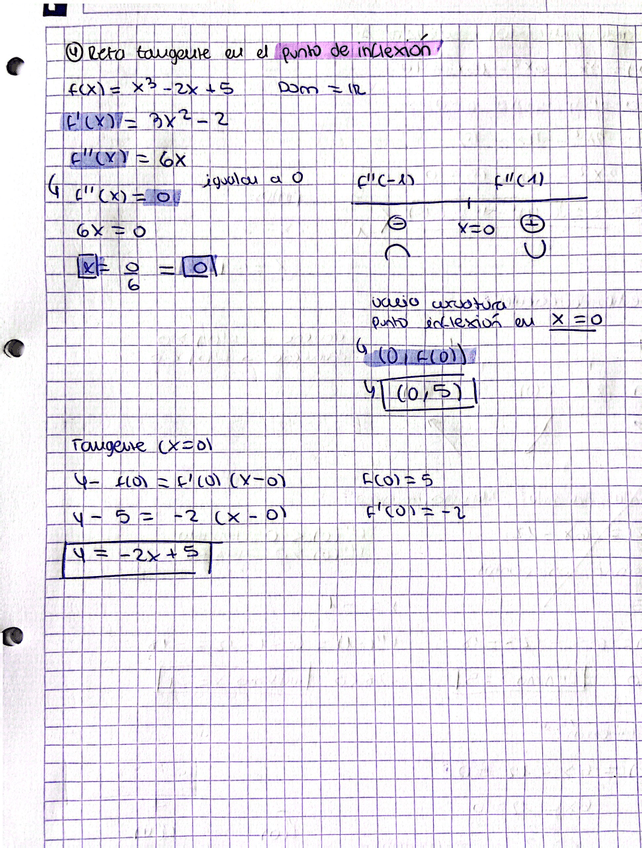 ④ Reta tangente en el punto de inflexión
f(x) = x³ - 2x + 5 Dom = IR
f'(x) = 3x² - 2
f''(x) = 6x
↳ f''(x) = 0 igualar a 0
6x = 0
x = 0/6 = 0
f''(-1) f''(1)
⊖ x=0 ⊕
∩ ∪
varia curvatura
punto inflexión en x = 0
↳ (0, f(0))
↳ (0,5)
Tangente (x=0)
y - f(0) = f'(0) (x-0) f(0) = 5
y - 5 = -2 (x - 0) f'(0) = -2
y = -2x + 5